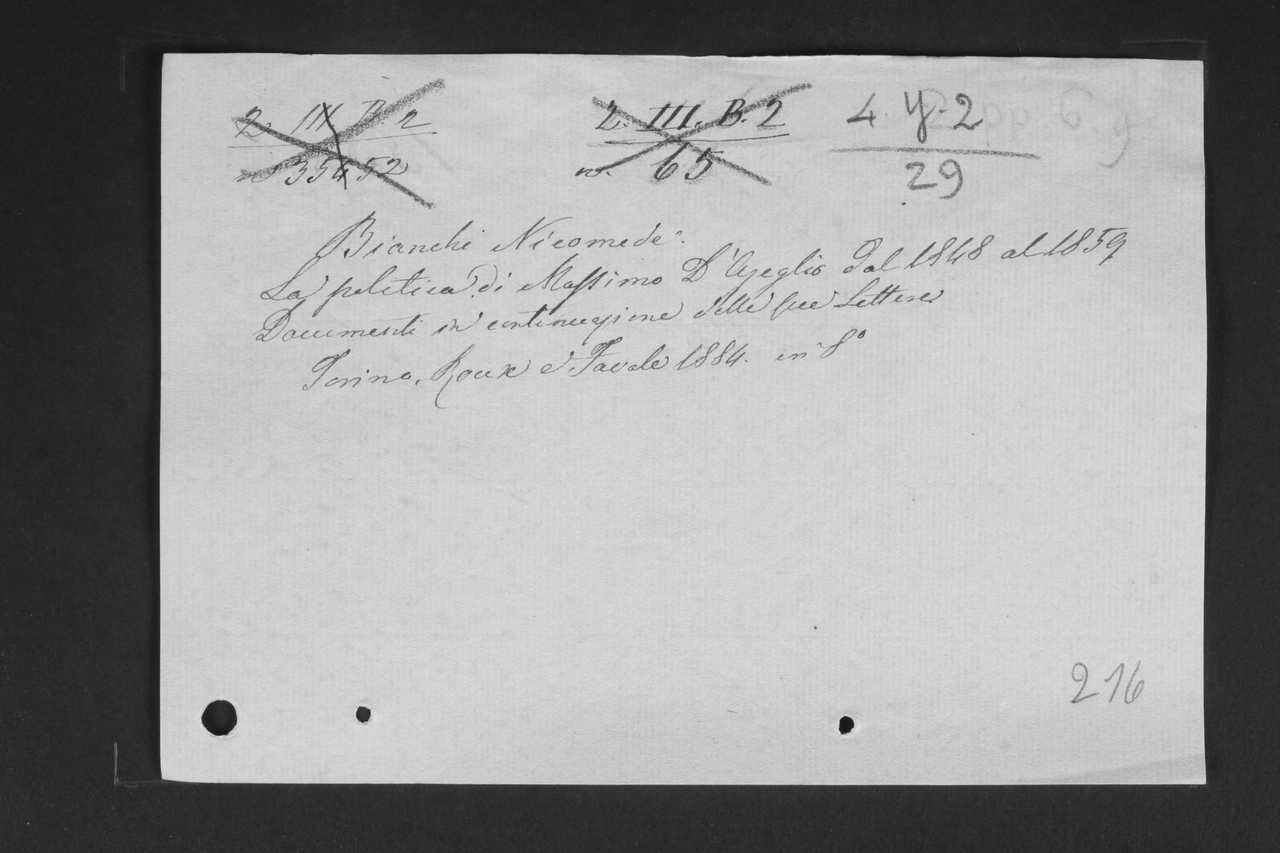 2. III. B. 2
n. 65
4 Y-2
29
Bianchi Nicomede.
La politica di Massimo D'Azeglio dal 1848 al 1859
Documenti in continuazione delle sue Lettere
Torino, Roux e Favale 1884. in 8°
216